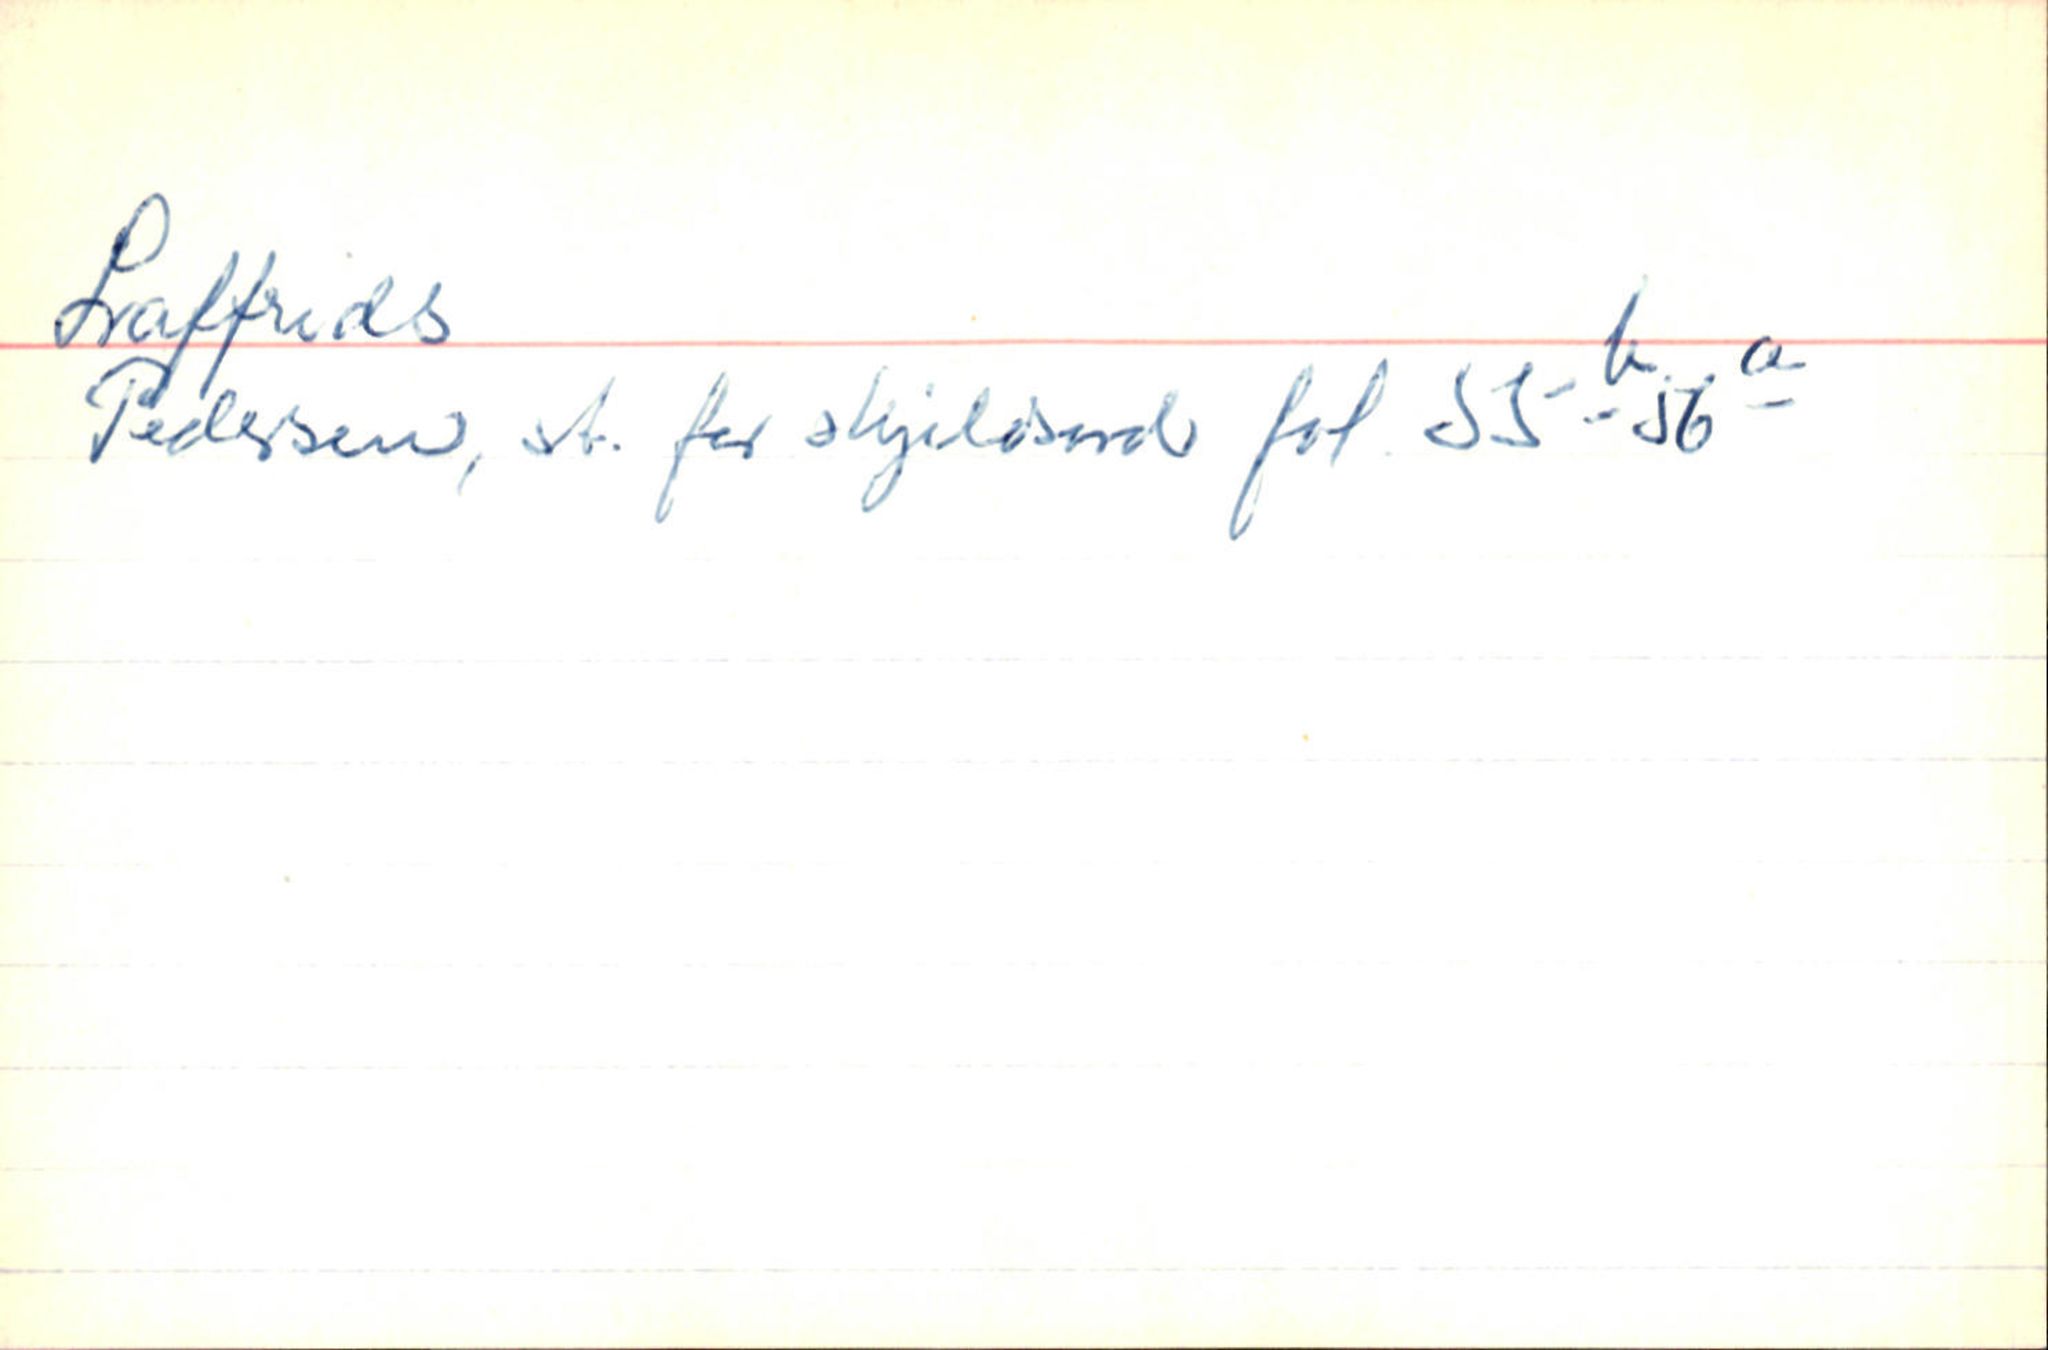 Laffrids
Pedersen, st. for skjeldsord fol. 55 b - 56 a